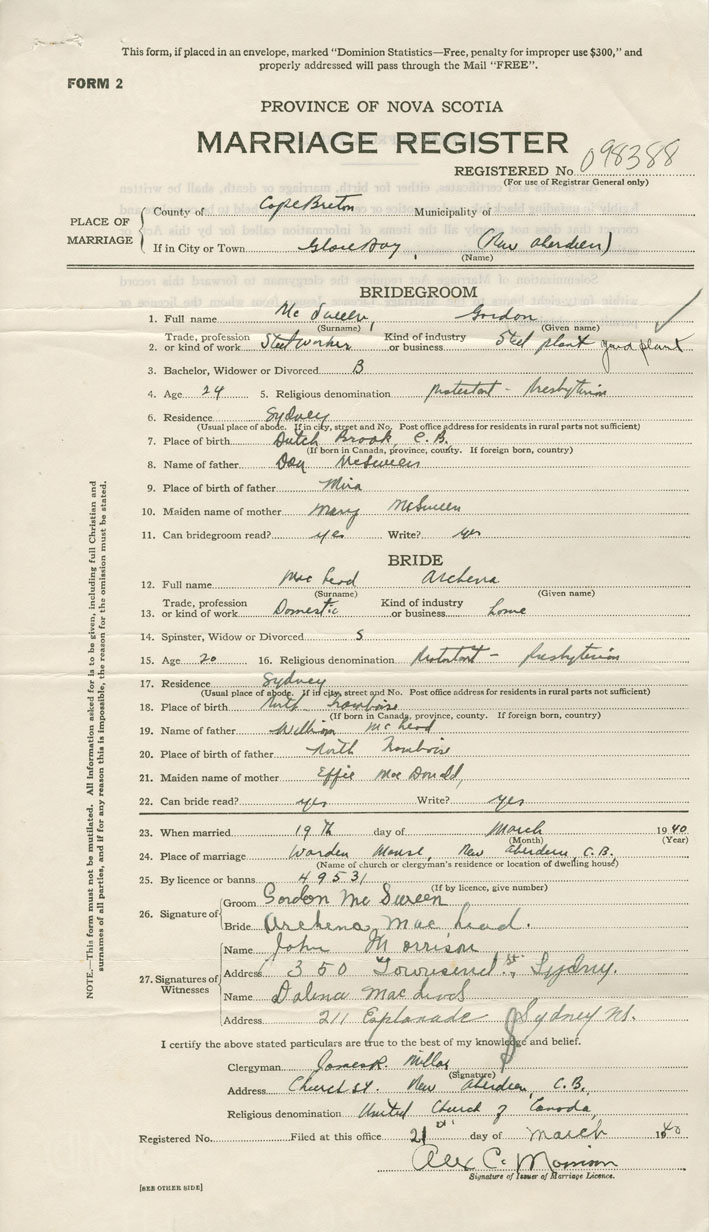 This form, if placed in an envelope, marked "Dominion Statistics—Free, penalty for improper use $300," and
properly addressed will pass through the Mail "FREE".
FORM 2
PROVINCE OF NOVA SCOTIA
MARRIAGE REGISTER
REGISTERED No. 098388
(For use of Registrar General only)
PLACE OF MARRIAGE
County of Cape Breton Municipality of
If in City or Town Glace Bay (New Aberdeen)
(Name)
BRIDEGROOM
1. Full name McSween, Gordon
(Surname) (Given name)
2. Trade, profession or kind of work Steel Worker Kind of industry or business Steel plant yard plant
3. Bachelor, Widower or Divorced B
4. Age 24 5. Religious denomination Protestant - Presbyterian
6. Residence Sydney
(Usual place of abode. If in city, street and No. Post office address for residents in rural parts not sufficient)
7. Place of birth Dutch Brook, C.B.
(If born in Canada, province, county. If foreign born, country)
8. Name of father Dan McSween
9. Place of birth of father Mira
10. Maiden name of mother Mary McSween
11. Can bridegroom read? yes Write? yes
BRIDE
12. Full name MacLeod Archena
(Surname) (Given name)
13. Trade, profession or kind of work Domestic Kind of industry or business home
14. Spinster, Widow or Divorced S
15. Age 20 16. Religious denomination Protestant - Presbyterian
17. Residence Sydney
(Usual place of abode. If in city, street and No. Post office address for residents in rural parts not sufficient)
18. Place of birth North Framboise
(If born in Canada, province, county. If foreign born, country)
19. Name of father William McLeod
20. Place of birth of father North Framboise
21. Maiden name of mother Effie MacDonald,
22. Can bride read? yes Write? yes
23. When married 19th day of March 1940
(Month) (Year)
24. Place of marriage Warden Manse, New Aberdeen, C.B.
(Name of church or clergyman's residence or location of dwelling house)
25. By licence or banns 49531
(If by licence, give number)
26. Signature of
Groom Gordon McSween
Bride Archena MacLead.
27. Signatures of Witnesses
Name John Morrison
Address 350 Townsend St., Sydney.
Name Dalena MacLeod
Address 211 Esplanade Sydney NS.
I certify the above stated particulars are true to the best of my knowledge and belief.
Clergyman James R. Millar
(Signature)
Address Church St. New Aberdeen, C.B.
Religious denomination United Church of Canada,
Registered No. Filed at this office 21st day of March 1940
Alex C. Morrison
Signature of Issuer of Marriage Licence.
[SEE OTHER SIDE]
NOTE.—This form must not be mutilated. All information asked for is to be given, including full Christian and
surnames of all parties, and if for any reason this is impossible, the reason for the omission must be stated.